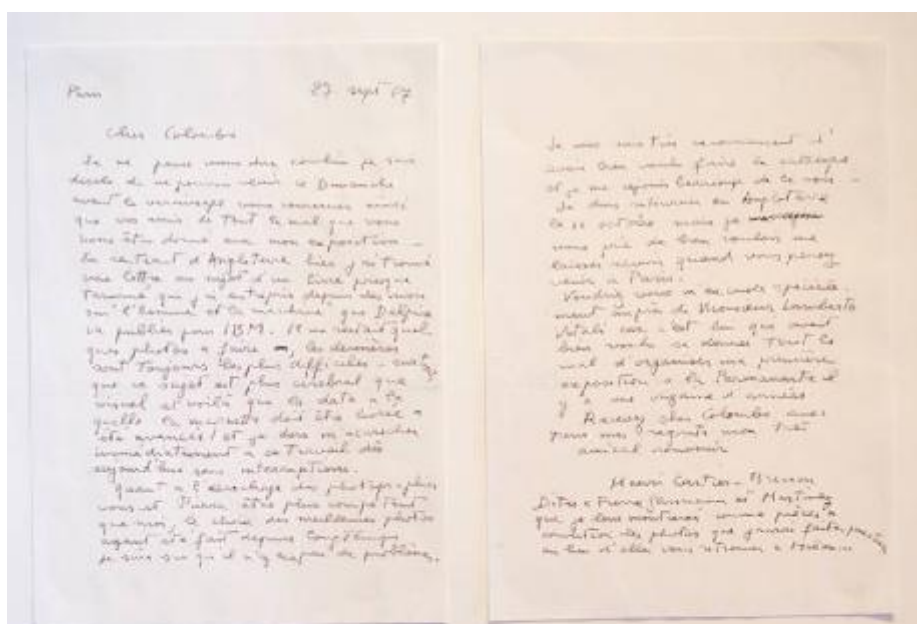 Paris 27 sept 67
Cher Colombo
Je ne peux vous dire combien je suis
désolé de ne pouvoir venir ce Dimanche
avant le vernissage vous remercier ainsi
que vos amis de tout le mal que vous
vous êtes donné avec mon exposition –
En rentrant d'Angleterre hier j'ai trouvé
une lettre au sujet d'un livre presque
terminé que j'ai entrepris depuis des mois
sur "l'homme et la machine" que Delpire
va publier pour IBM. Il me restait quel
ques photos a faire, les dernières
sont toujours les plus difficiles –
que ce sujet est plus cérébral que
visuel et voilà que la date a la
quelle la maquette doit être livrée a
été avancée! et je dois m'accrocher
immédiatement a ce travail dès
aujourd'hui sans interruptions.
Quant a l'accrochage des photos
vous et serez plus compétent
que moi, le choix des meilleures photos
ayant été fait depuis longtemps
je suis sûr que il n'y a pas de problème.
Je vous suis très reconnaissant d'
avoir bien voulu faire le catalogue
et je me réjouis beaucoup de le voir –
Je dois retourner en Angleterre
le octobre mais je
vous prie de bien vouloir me
laisser savoir quand vous pensez
venir a Paris.
Voudriez vous m'excuser spéciale
ment auprès de Monsieur Lamberto
Vitali car c'est lui que avait
bien voulu se donner tout le
mal d'organiser ma première
exposition a la Permanente il
y a une vingtaine d'années
Recevez cher Colombo avec
tous mes regrets mon très
amical souvenir
Henri Cartier-Bresson
Dites a et Martinez
que je leur montrerai
condition les photos que j'aurai faites
au lieu d'aller vous retrouver a Milan